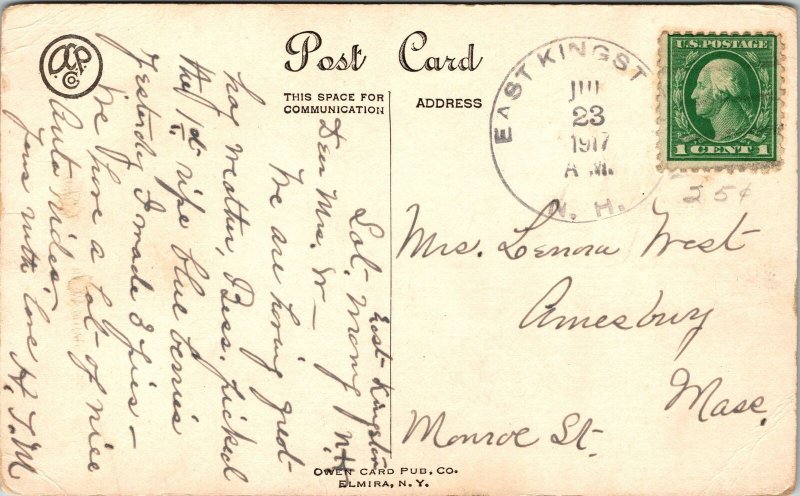 Post Card
THIS SPACE FOR
COMMUNICATION
ADDRESS
EAST KINGST
JUL
23
1917
A.M.
N. H.
U.S. POSTAGE
1 CENT 1
25¢
East Kingston
N.H.
Sat. Morning
Dear Mrs. W—
We are having great
hay weather, Bess picked
the 1st ripe blue berries
Yesterday I made 3 pies —
We have a lot of nice
Auto rides —
Yours with love H. T. M
Mrs. Lenora West
Amesbury
Mass.
Monroe St.
OWEN CARD PUB. CO.
ELMIRA, N. Y.